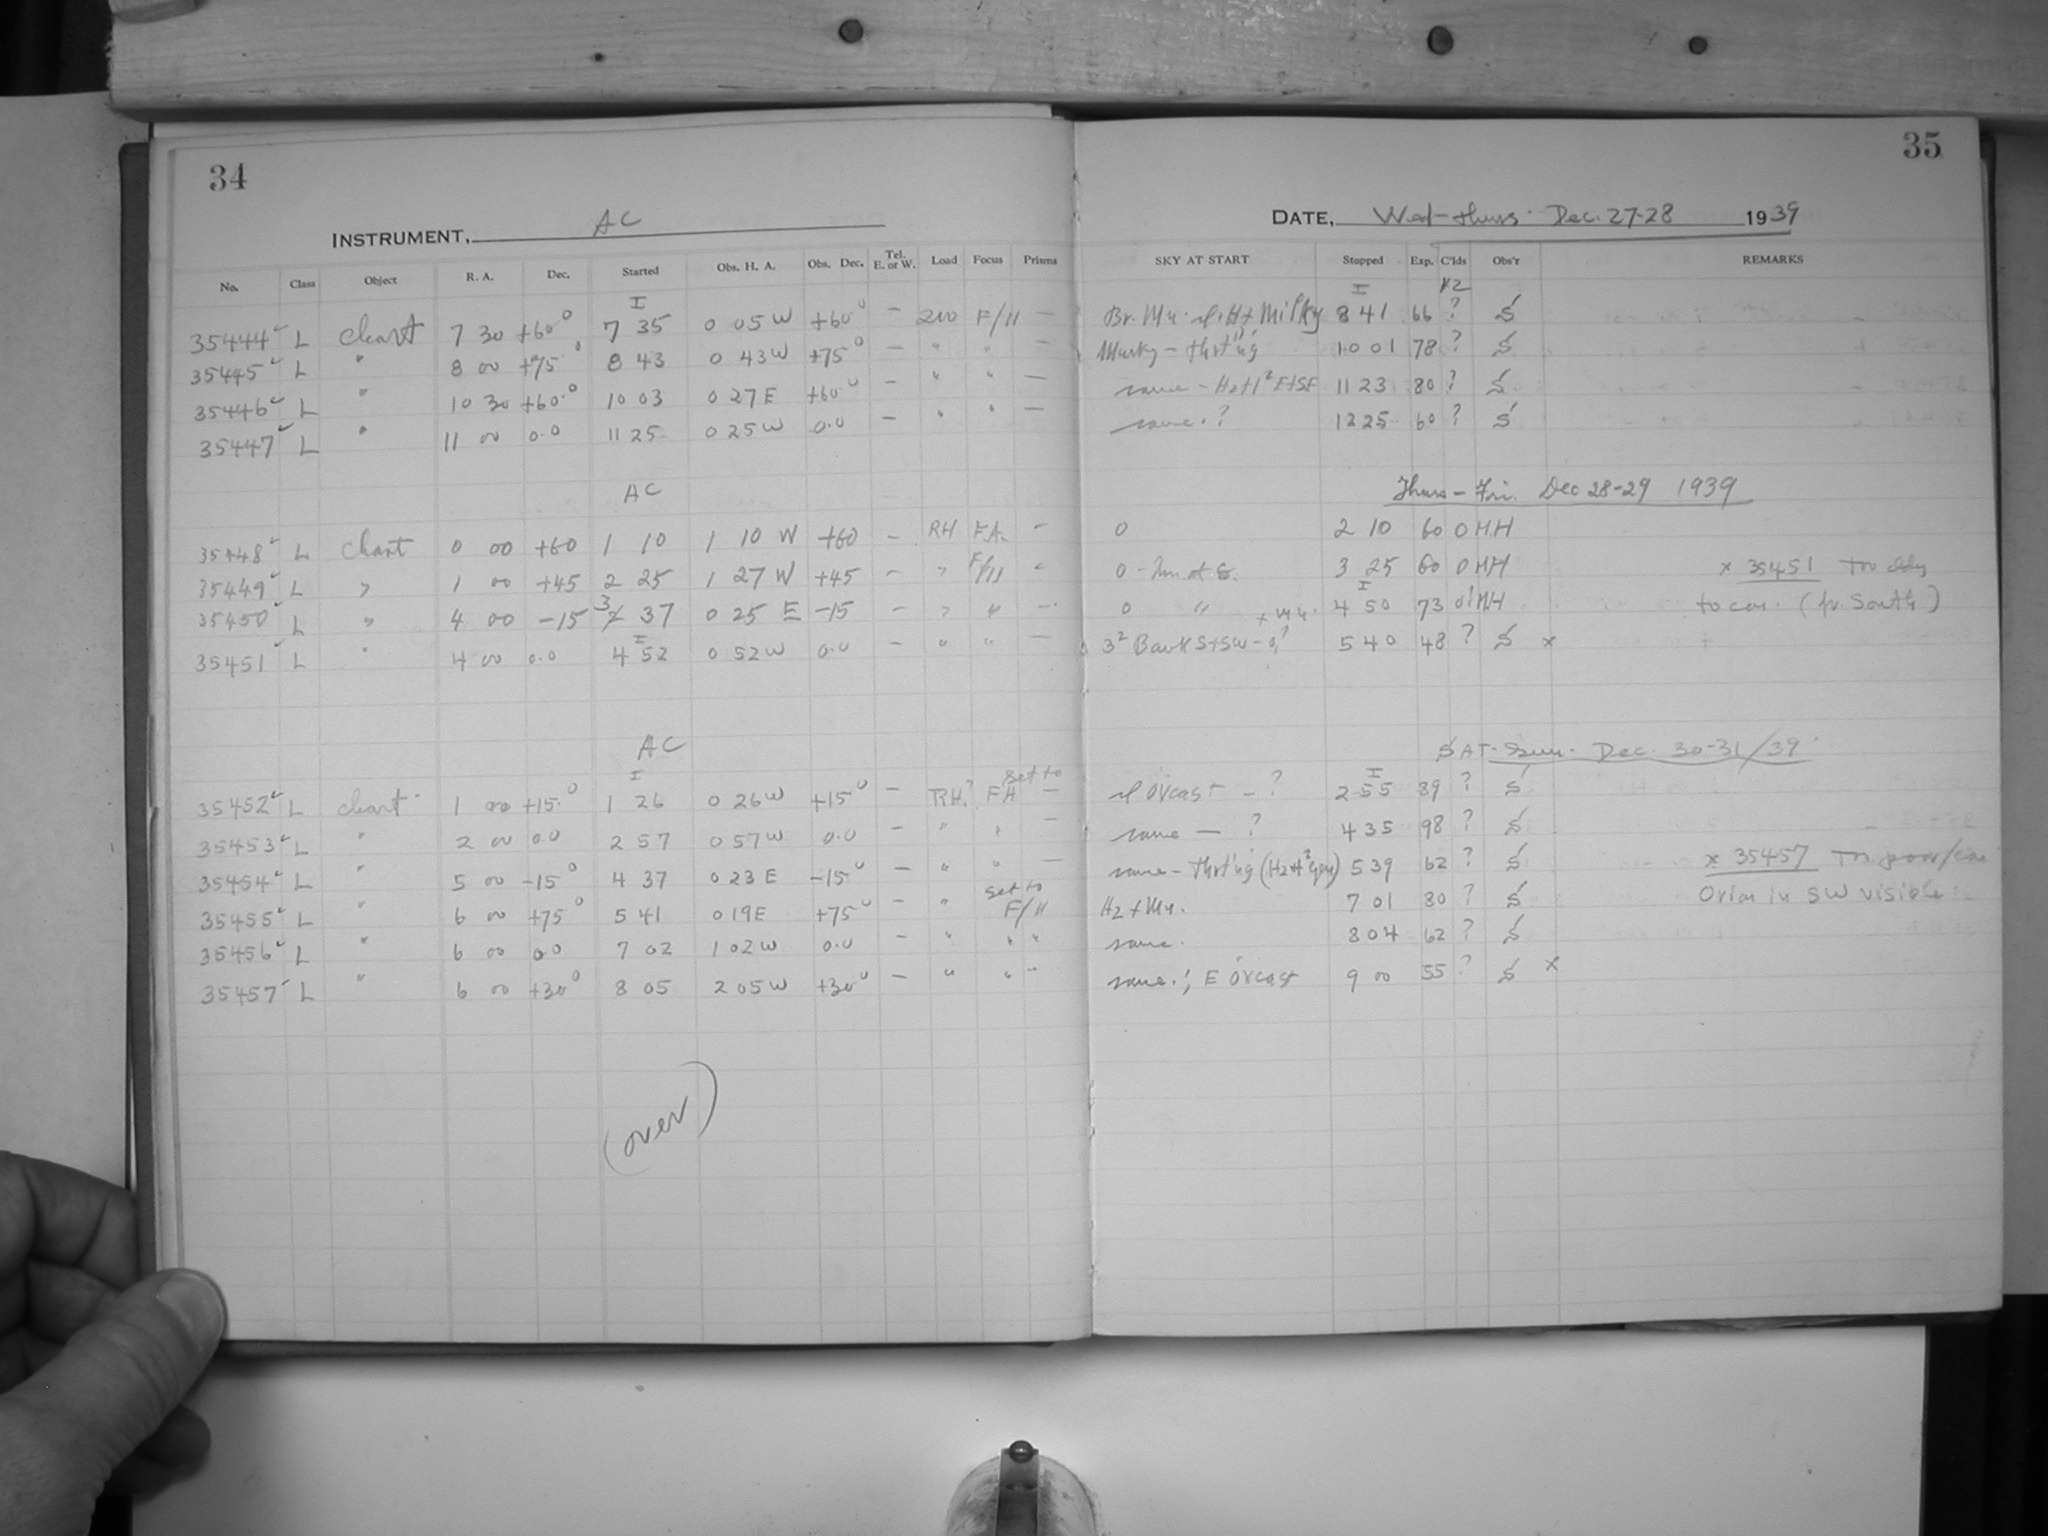 34
35
INSTRUMENT, AC
DATE, Wed-Thurs. Dec. 27-28 1939
No. Class Object R. A. Dec. Started Obs. H. A. Obs. Dec. Tel. E. or W. Load Focus Prisms SKY AT START Stopped Exp. C'lds Obs'r REMARKS
35444 L Chart 7 30 +60° 7 35 0 05 W +60° — 200 F/11 — 8 41 66 ? S
35445 L " 8 00 +75° 8 43 0 43 W +75° — " " — Murky - thrt'ng 10 01 78 ? S
35446 L " 10 30 +60° 10 03 0 27 E +60° — " " — same - 11 23 80 ? S
35447 L " 11 00 0.0 11 25 0 25 W 0.0 — " " — same. ? 12 25 60 ? S
AC
Thurs - Fri. Dec 28-29 1939
35448 L Chart 0 00 +60 1 10 1 10 W +60 — RH F.A. — 0 2 10 60 0 HH
35449 L " 1 00 +45 2 25 1 27 W +45 — " F/11 " 0 - 3 25 60 0 HH x 35451 Too cldy
35450 L " 4 00 -15 3 37 0 25 E -15 — " " — 0 " 4 50 73 0! HH to con. (fr. South)
35451 L " 4 00 0.0 4 52 0 52 W 0.0 — " " — 3² Bank S+SW - 5 40 48 ? S x
AC
SAT-Sun. Dec. 30-31/39
35452 L Chart 1 00 +15° 1 26 0 26 W +15° — RH? set to FA — ovcast - ? 2 55 89 ? S
35453 L " 2 00 0.0 2 57 0 57 W 0.0 — " " — same — ? 4 35 98 ? S
35454 L " 5 00 -15° 4 37 0 23 E -15° — " " — same - Thrt'ng 5 39 62 ? S x 35457 Too poor/con
35455 L " 6 00 +75° 5 41 0 19 E +75° — " set to F/11 Hz + My. 7 01 80 ? S Orion in SW visible
35456 L " 6 00 0.0 7 02 1 02 W 0.0 — " " " same. 8 04 62 ? S
35457 L " 6 00 +30° 8 05 2 05 W +30° — " " " same.; E ovcast 9 00 55 ? S x
(over)